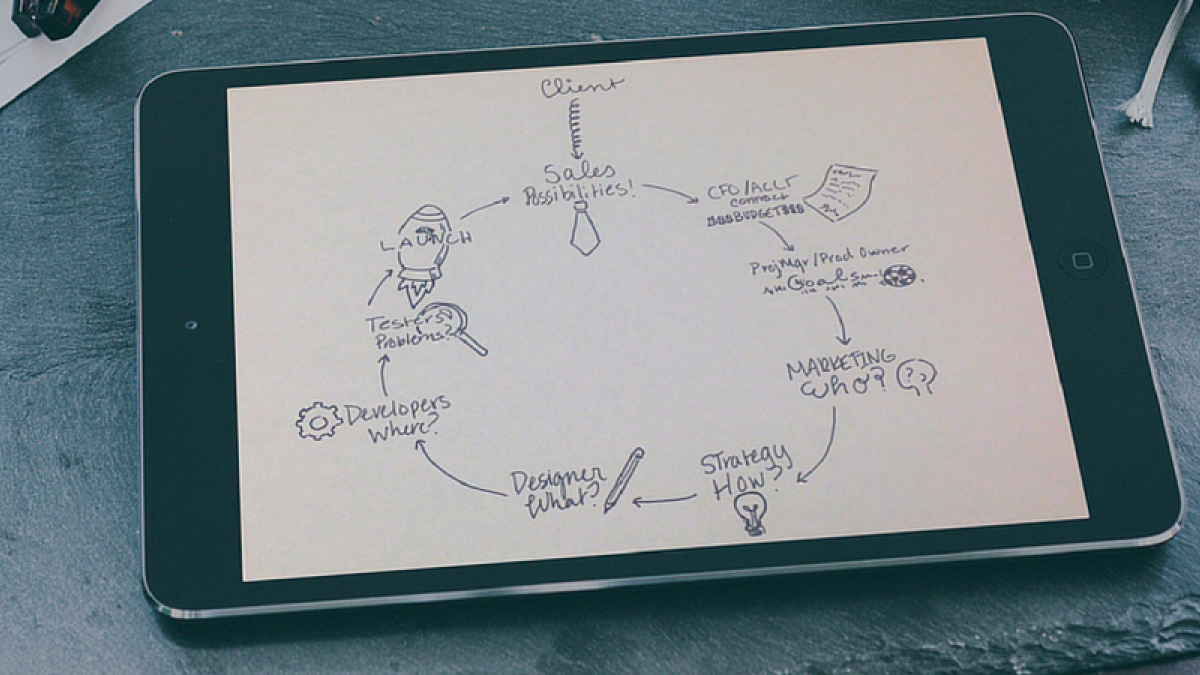 Client
Sales
Possibilities!
CFO/ACCT
contract
$$$BUDGET$$$
ProjMgr/Prod Owner
Goals
MARKETING
Who?
Strategy
How?
Designer
What?
Developers
Where?
Testers
Problems?
LAUNCH